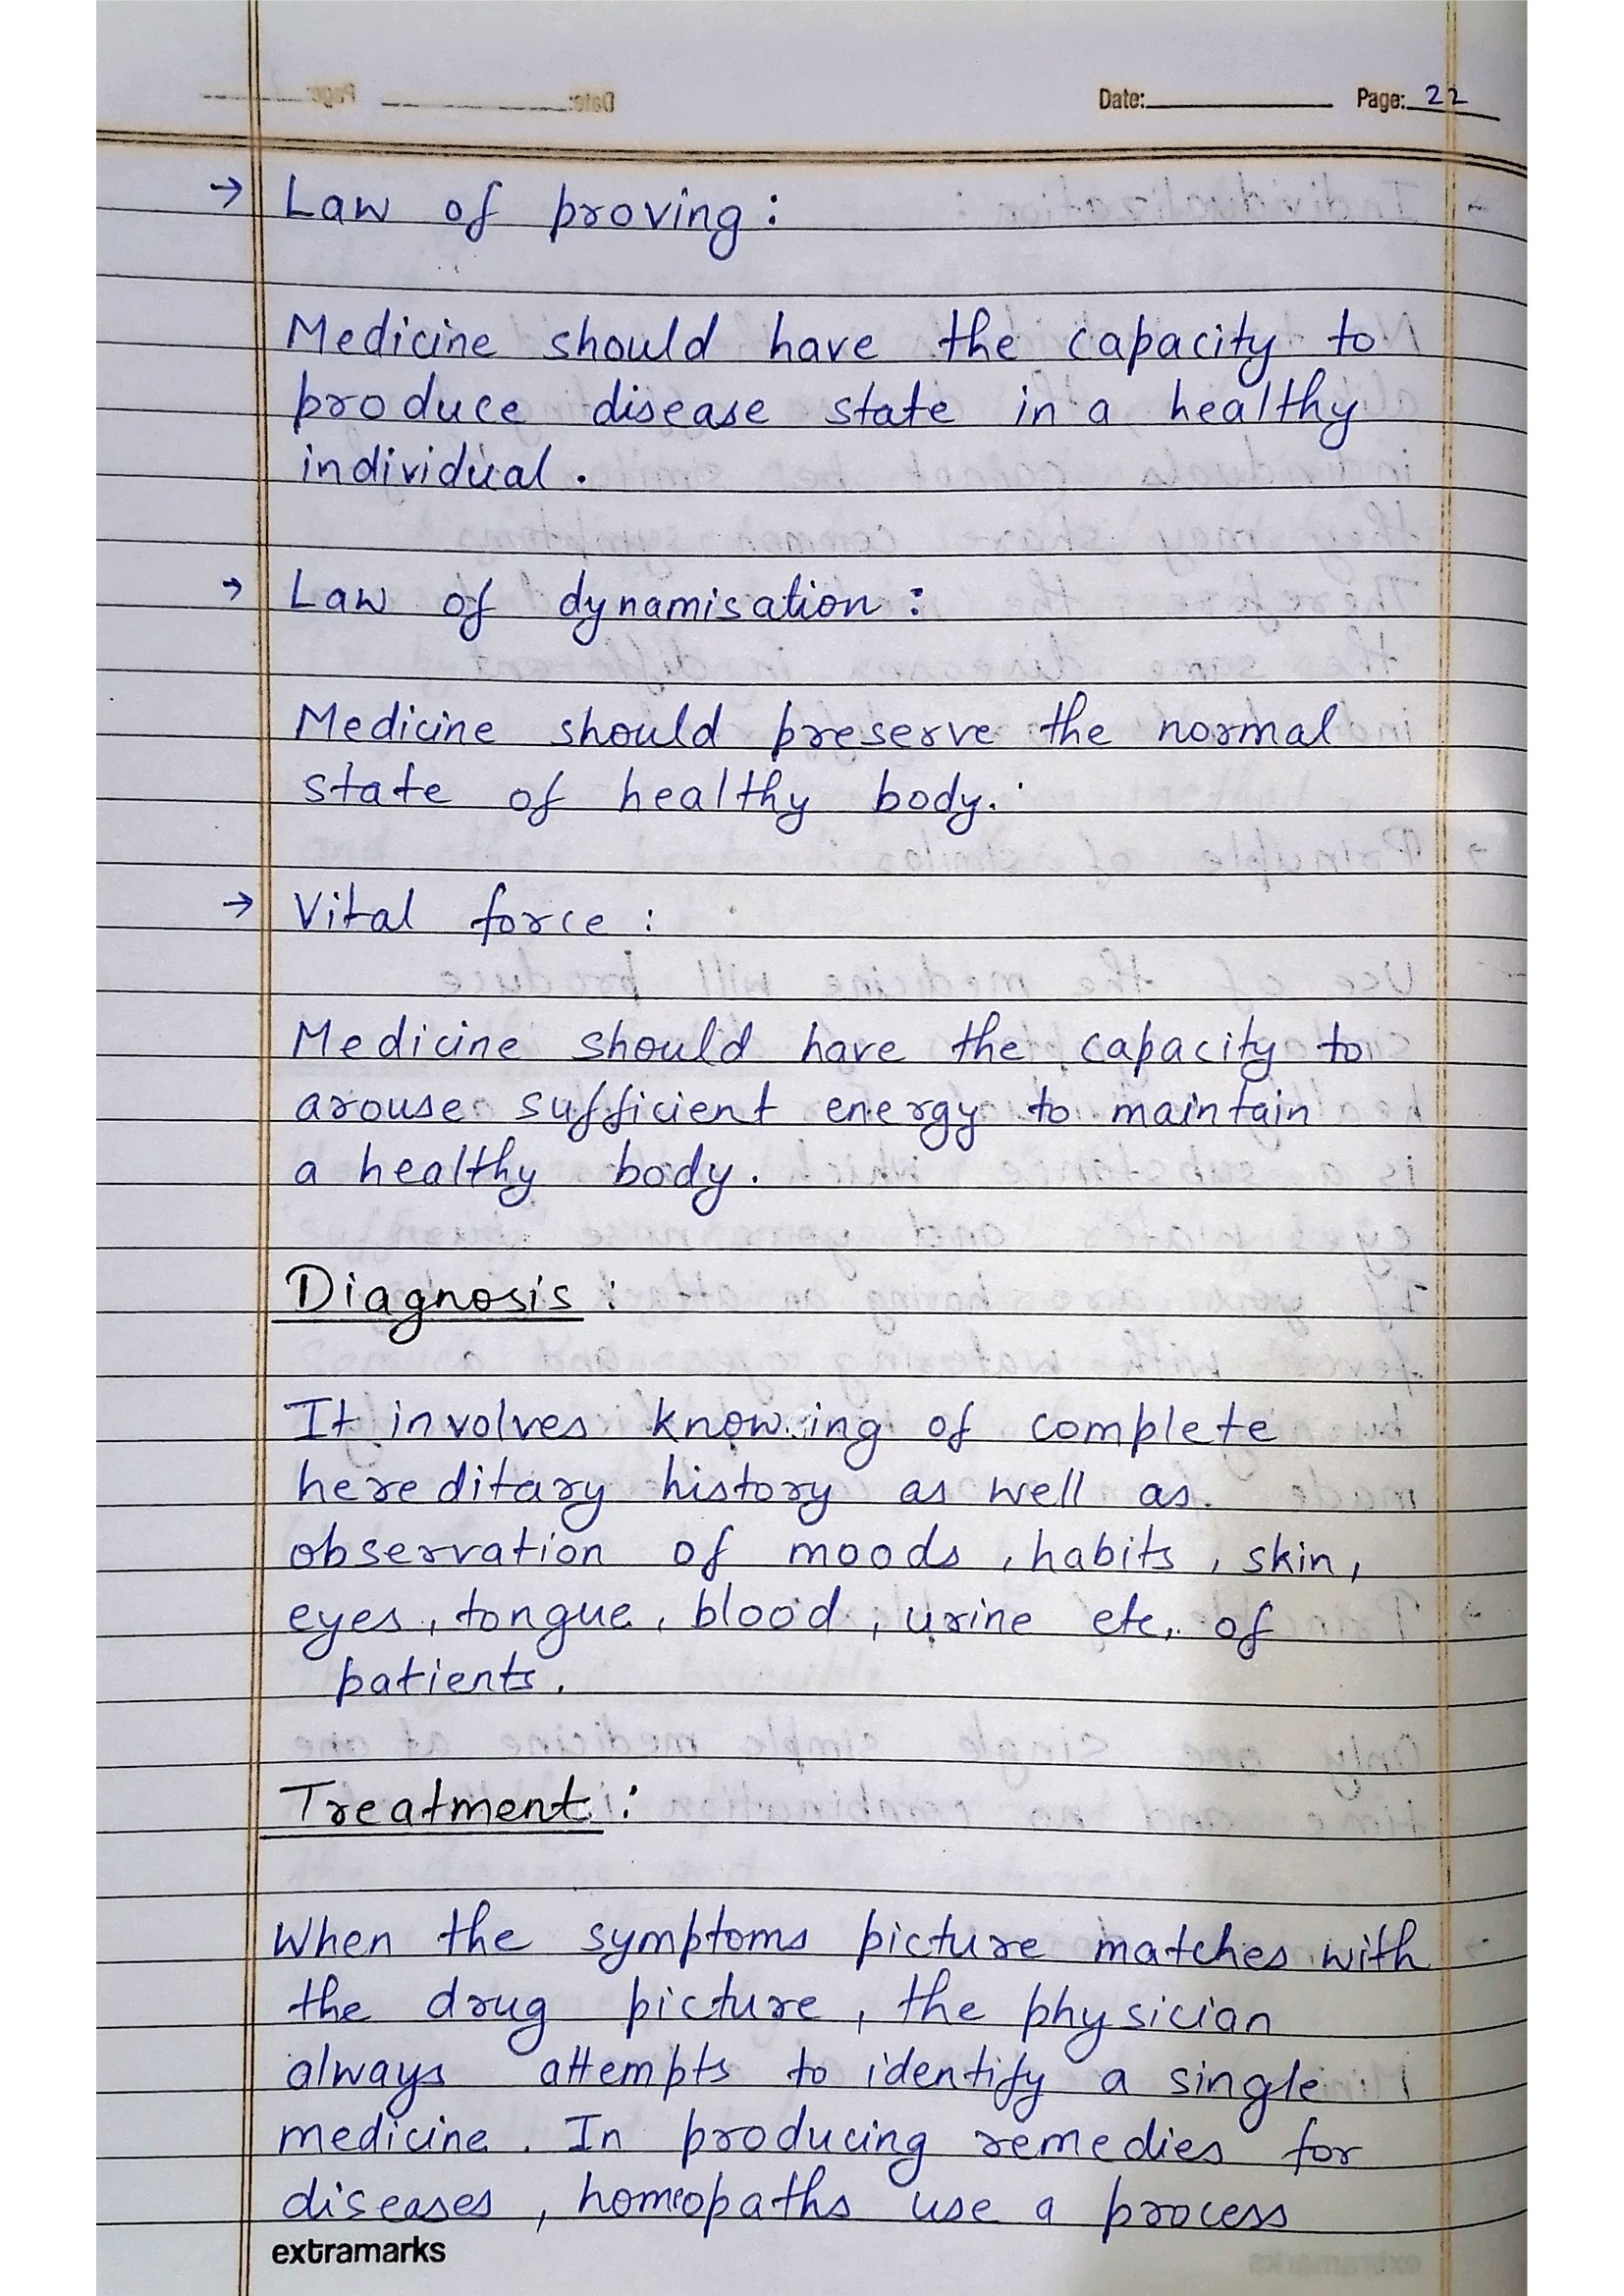 Date: Page: 22
→ Law of proving :
Medicine should have the capacity to
produce disease state in a healthy
individual .
→ Law of dynamisation :
Medicine should preserve the normal
state of healthy body.
→ Vital force :
Medicine should have the capacity to
arouse sufficient energy to maintain
a healthy body.
Diagnosis :
It involves knowing of complete
hereditary history as well as
observation of moods , habits , skin ,
eyes , tongue , blood , urine etc. of
patients .
Treatment :
When the symptoms picture matches with
the drug picture , the physician
always attempts to identify a single
medicine . In producing remedies for
diseases , homeopaths use a process
extramarks